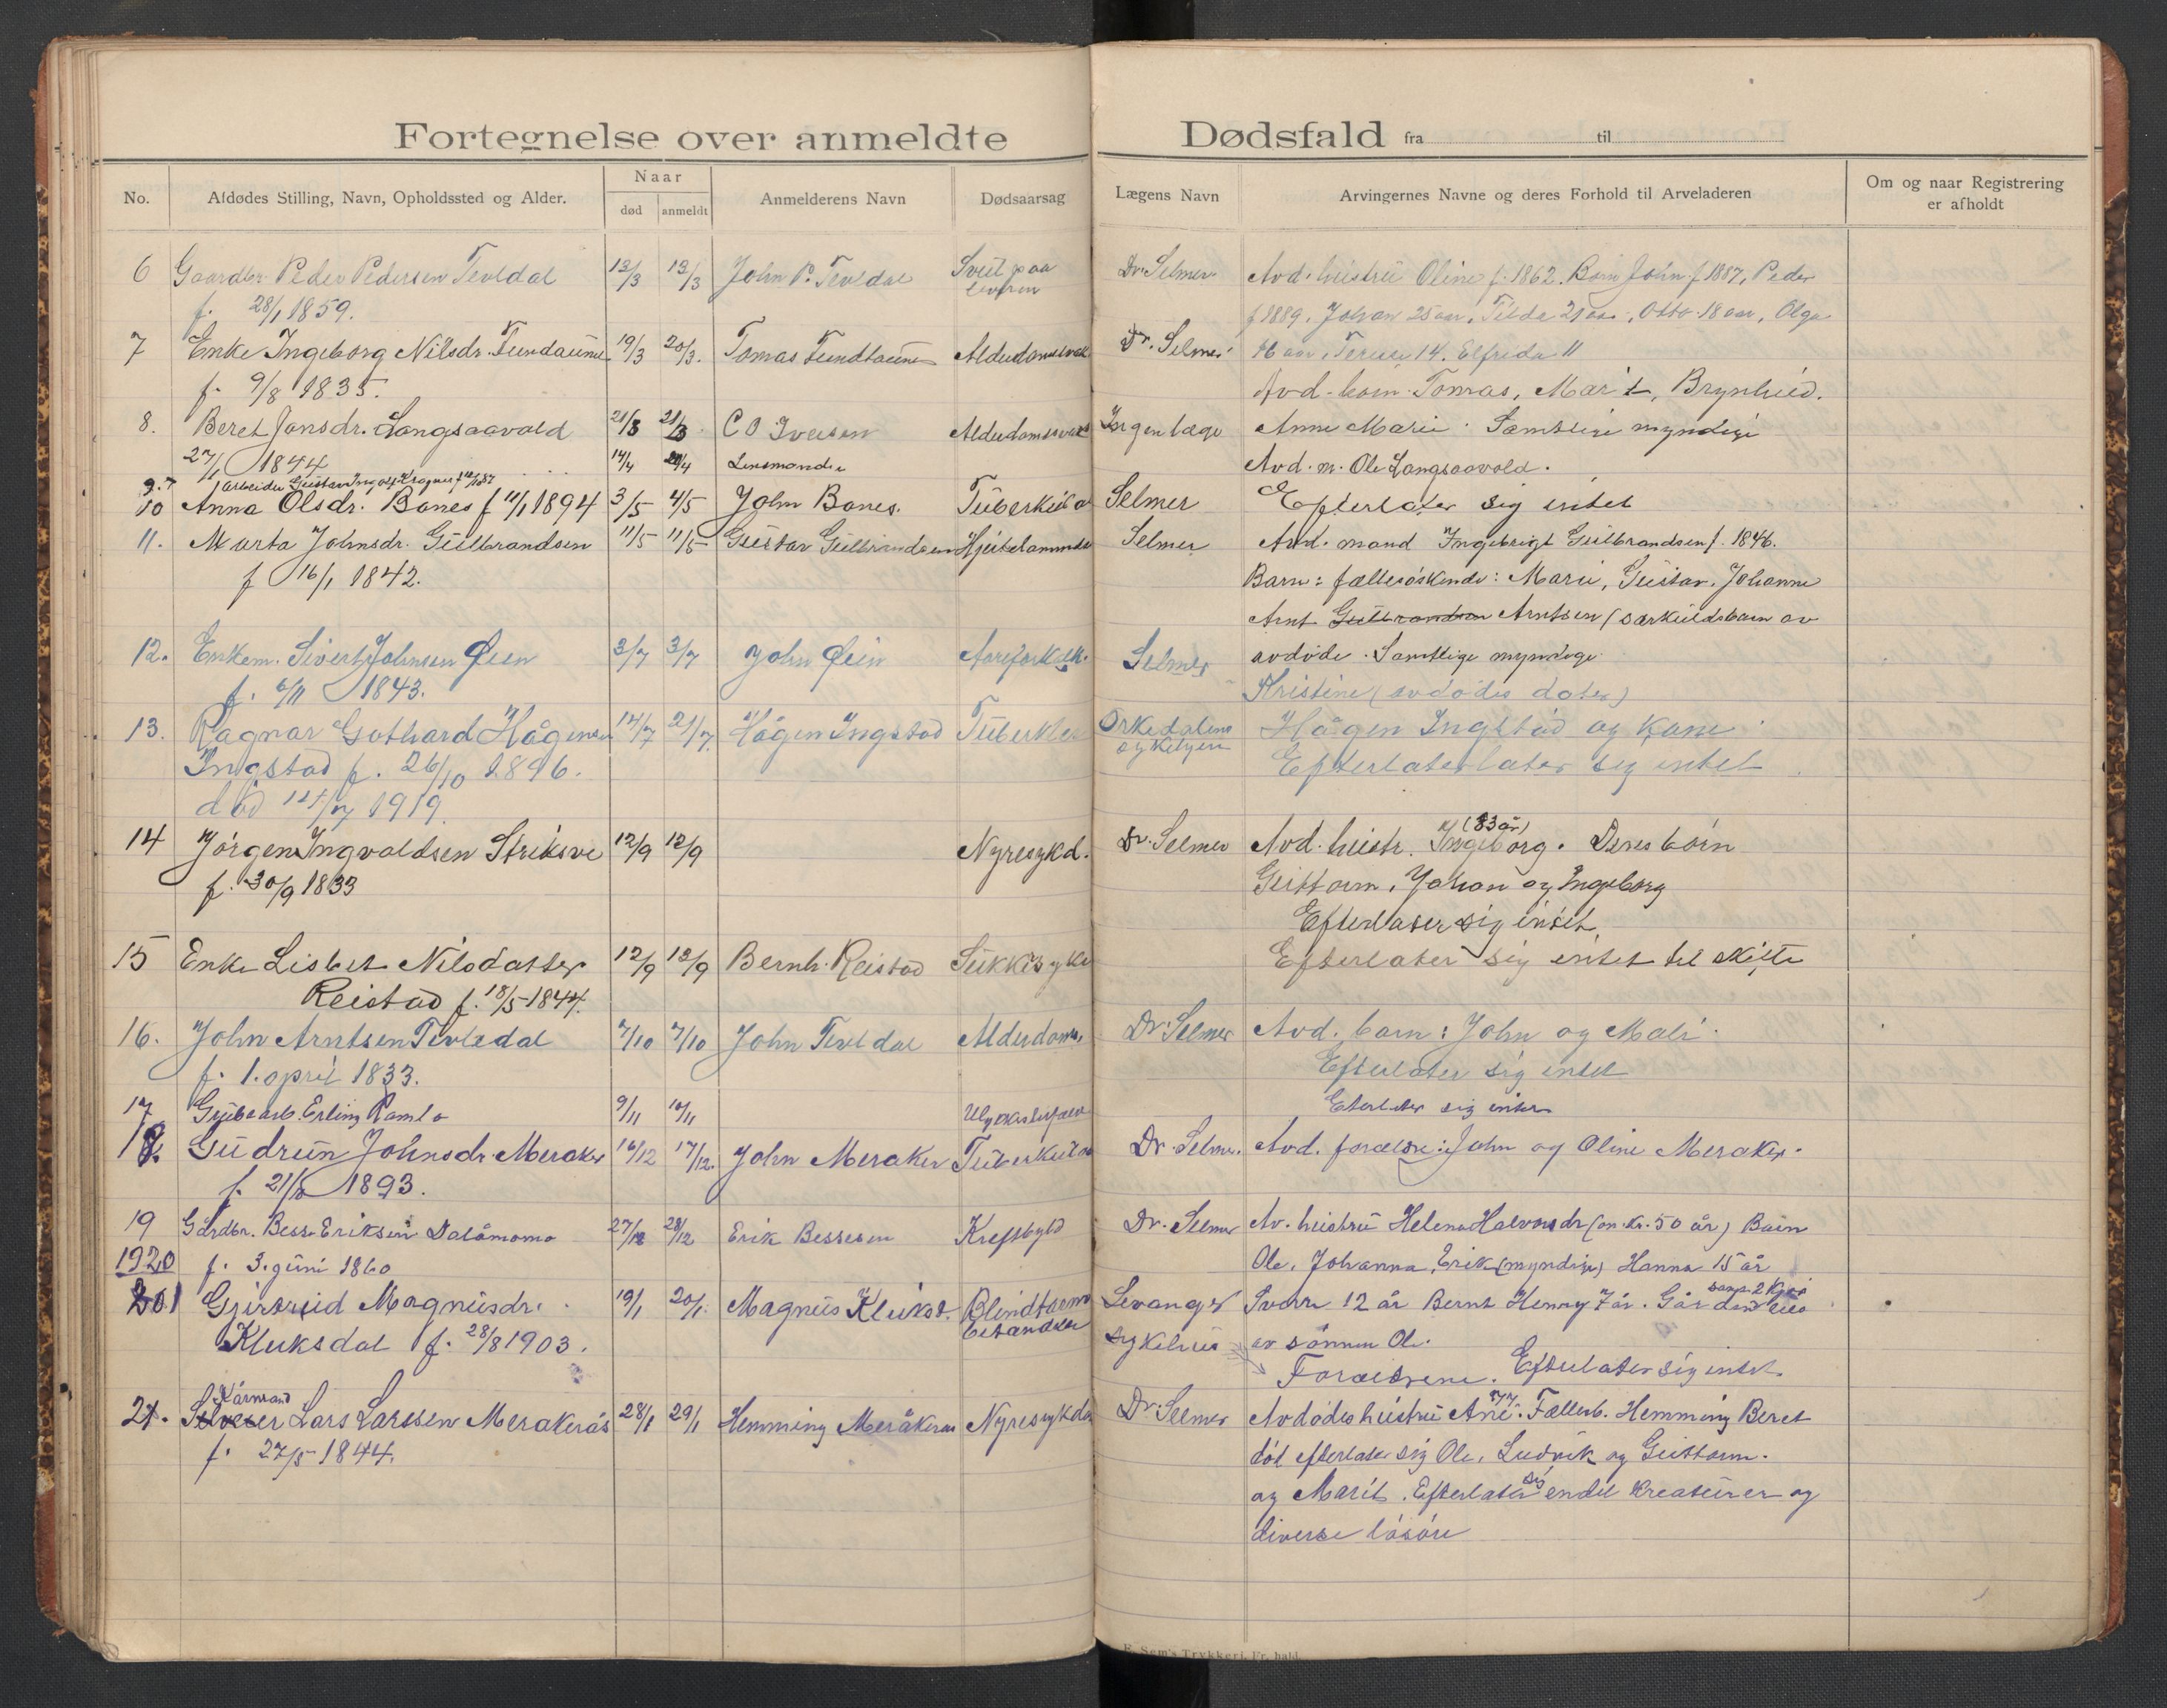 Fortegnelse over anmeldte Dødsfald fra til
No. Afdødes Stilling, Navn, Opholdssted og Alder. Naar død anmeldt Anmelderens Navn Dødsaarsag Lægens Navn Arvingernes Navne og deres Forhold til Arveladeren Om og naar Registrering er afholdt
6 Gaardbr. Peder Pedersen Tevldal 13/3 13/3 John P. Tevldal paa Dr. Selmer Avd. hustru Oline f. 1862. Barn John f 1887, Peder
f. 28/1 1859. f 1889, Johan 25 aar, Tilda 21 aar, Otto 18 aar, Olga
7 Enke Ingeborg Nilsdr. Fundaune 19/3 20/3. Tomas Fundtaune Dr. Selmer 16 aar, 14. Elfrida 11
f. 9/8 1835. Avd. barn Tomas, Marit, Brynhild.
8. Beret Jonsdr. Langsaavold 21/3 21/3 C O Iversen Alderdomssvak Ingen læge Anne Marie. Samtlige myndige
27/1 1844 14/4 20/4 Lensmanden Avd. m. Ole Langsaavold.
9. Arbeider Gustav
10 Anna Olsdr. Bones f 11/1 1894 3/5 4/5 John Bones. Tuberkul Selmer Efterlater sig intet
11. Marta Johnsdr. Gulbrandsen 11/5 11/5 Gustav Gulbrandsen Hjertelammelse Selmer Avd. mand Ingebrigt Gulbrandsen f. 1846.
f 16/1 1842. Barn: fællesøskende: Marie, Gustav, Johanne
Arnt Gulbrandsen Arntsen (særkuldsbarn av
12. Enkem. Sivert Johnsen Øien 3/7 3/7 John Øien Aareforkalk. Selmer avdøde. Samtlige myndige
f. 6/11 1843. Kristine (avdødes dater)
13. Ragnar Gothard Hågensen 14/7 21/7. Hågen Ingstad Tuberkler Orkedalens sykehjem Hågen Ingstad og kone
Ingstad f. 26/10 1896. Efterlater later sig intet
død 14/7 1919.
14 Jörgen Ingvaldsen Striksve 12/9 12/9 Nyresykd. Dr. Selmer Avd. hustr. Ingeborg (83 år). Deres børn
f. 30/9 1833 Guttorm, Johan og Ingeborg
Efterlater sig intet.
15 Enke Lisbet Nilsdatter 12/9 13/9 Bernh. Reistad Sukkersyke Efterlater sig intet til skifte
Reistad f. 18/5-1844.
16. John Arntsen Tevledal 7/10 7/10 John Tevldal Alderdoms. Dr. Selmer Avd. barn: John og Mali.
f. 1. april 1833. Efterlater sig intet
17 Grubearb. Erling Ramlo 9/11 10/11 Ulykkestilfælde Eterlater sig intet
18. Gudrun Johnsdr. Meraker 16/12 17/12. John Meraker Tuberkulos Dr. Selmer. Avd. forældre: John og Oline Meraker.
f. 21/ 1893.
19 Gårdbr. Bess Eriksen Dalåmomo 27/12 28/12 Erik Bessesen Kreftbyld Dr. Selmer Av. hustru Helena Halvorsdr (om. kr. 50 år) Barn
1920 f. 3. juni 1860 Ole, Johanna, Erik (myndige) Hanna 15 år
1 Gjertrud Magnusdr. 19/1 20/1. Magnus Kluksd. Blindtarm betændelse Levanger Sverre 12 år Bernt Henny 7 år. Går den
Kluksdal f. 28/8 1903. sykehus av sønnen Ole.
Forældrene. Efterlater sig intet.
2. Kårmand Lars Larssen Merakerås 28/1 29/1 Hemming Meråkerås Nyresykdom Dr. Selmer Avdødes hustru Ane 77. Fællesb. Hemming Beret
f. 27/5 1844. død efterlater sig Ole, Ludvik og Guttorm.
og Marit. Efterlater sig endel kreaturer og
diverse løsøre
F. Sem's Trykkeri, Fr. hald.